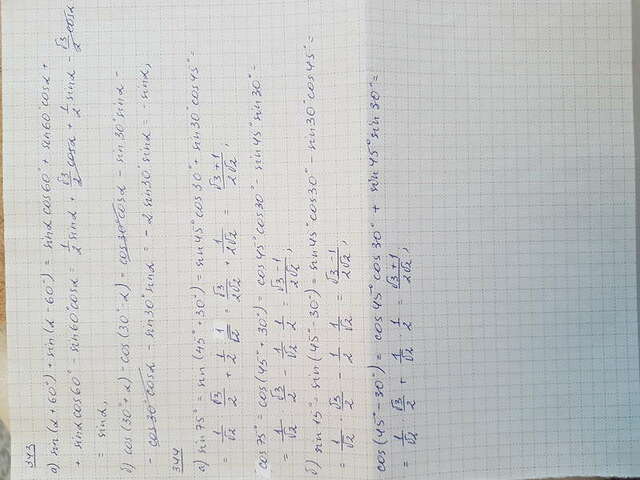 343
а) sin(α+60°)+sin(α-60°) = sinα cos60° + sin60°cosα +
+ sinα cos60° - sin60°cosα = 1/2 sinα + √3/2 cosα + 1/2 sinα - √3/2 cosα
= sinα,
б) cos(30°+α)-cos(30°-α) = cos30°cosα - sin30°sinα -
- cos30°cosα - sin30°sinα = -2sin30°sinα = -sinα,
344
а) sin75° = sin(45°+30°) = sin45°cos30° + sin30°cos45° =
= 1/√2 √3/2 + 1/2 · 1/√2 = √3/2√2 + 1/2√2 = √3+1/2√2;
cos75° = cos(45°+30°) = cos45°cos30° - sin45°sin30° =
= 1/√2 · √3/2 - 1/√2 · 1/2 = √3-1/2√2;
б) sin15° = sin(45°-30°) = sin45°cos30° - sin30°cos45° =
= 1/√2 · √3/2 - 1/2 · 1/√2 = √3-1/2√2;
cos(45°-30°) = cos45°cos30° + sin45°sin30° =
= 1/√2 · √3/2 + 1/√2 · 1/2 = √3+1/2√2;